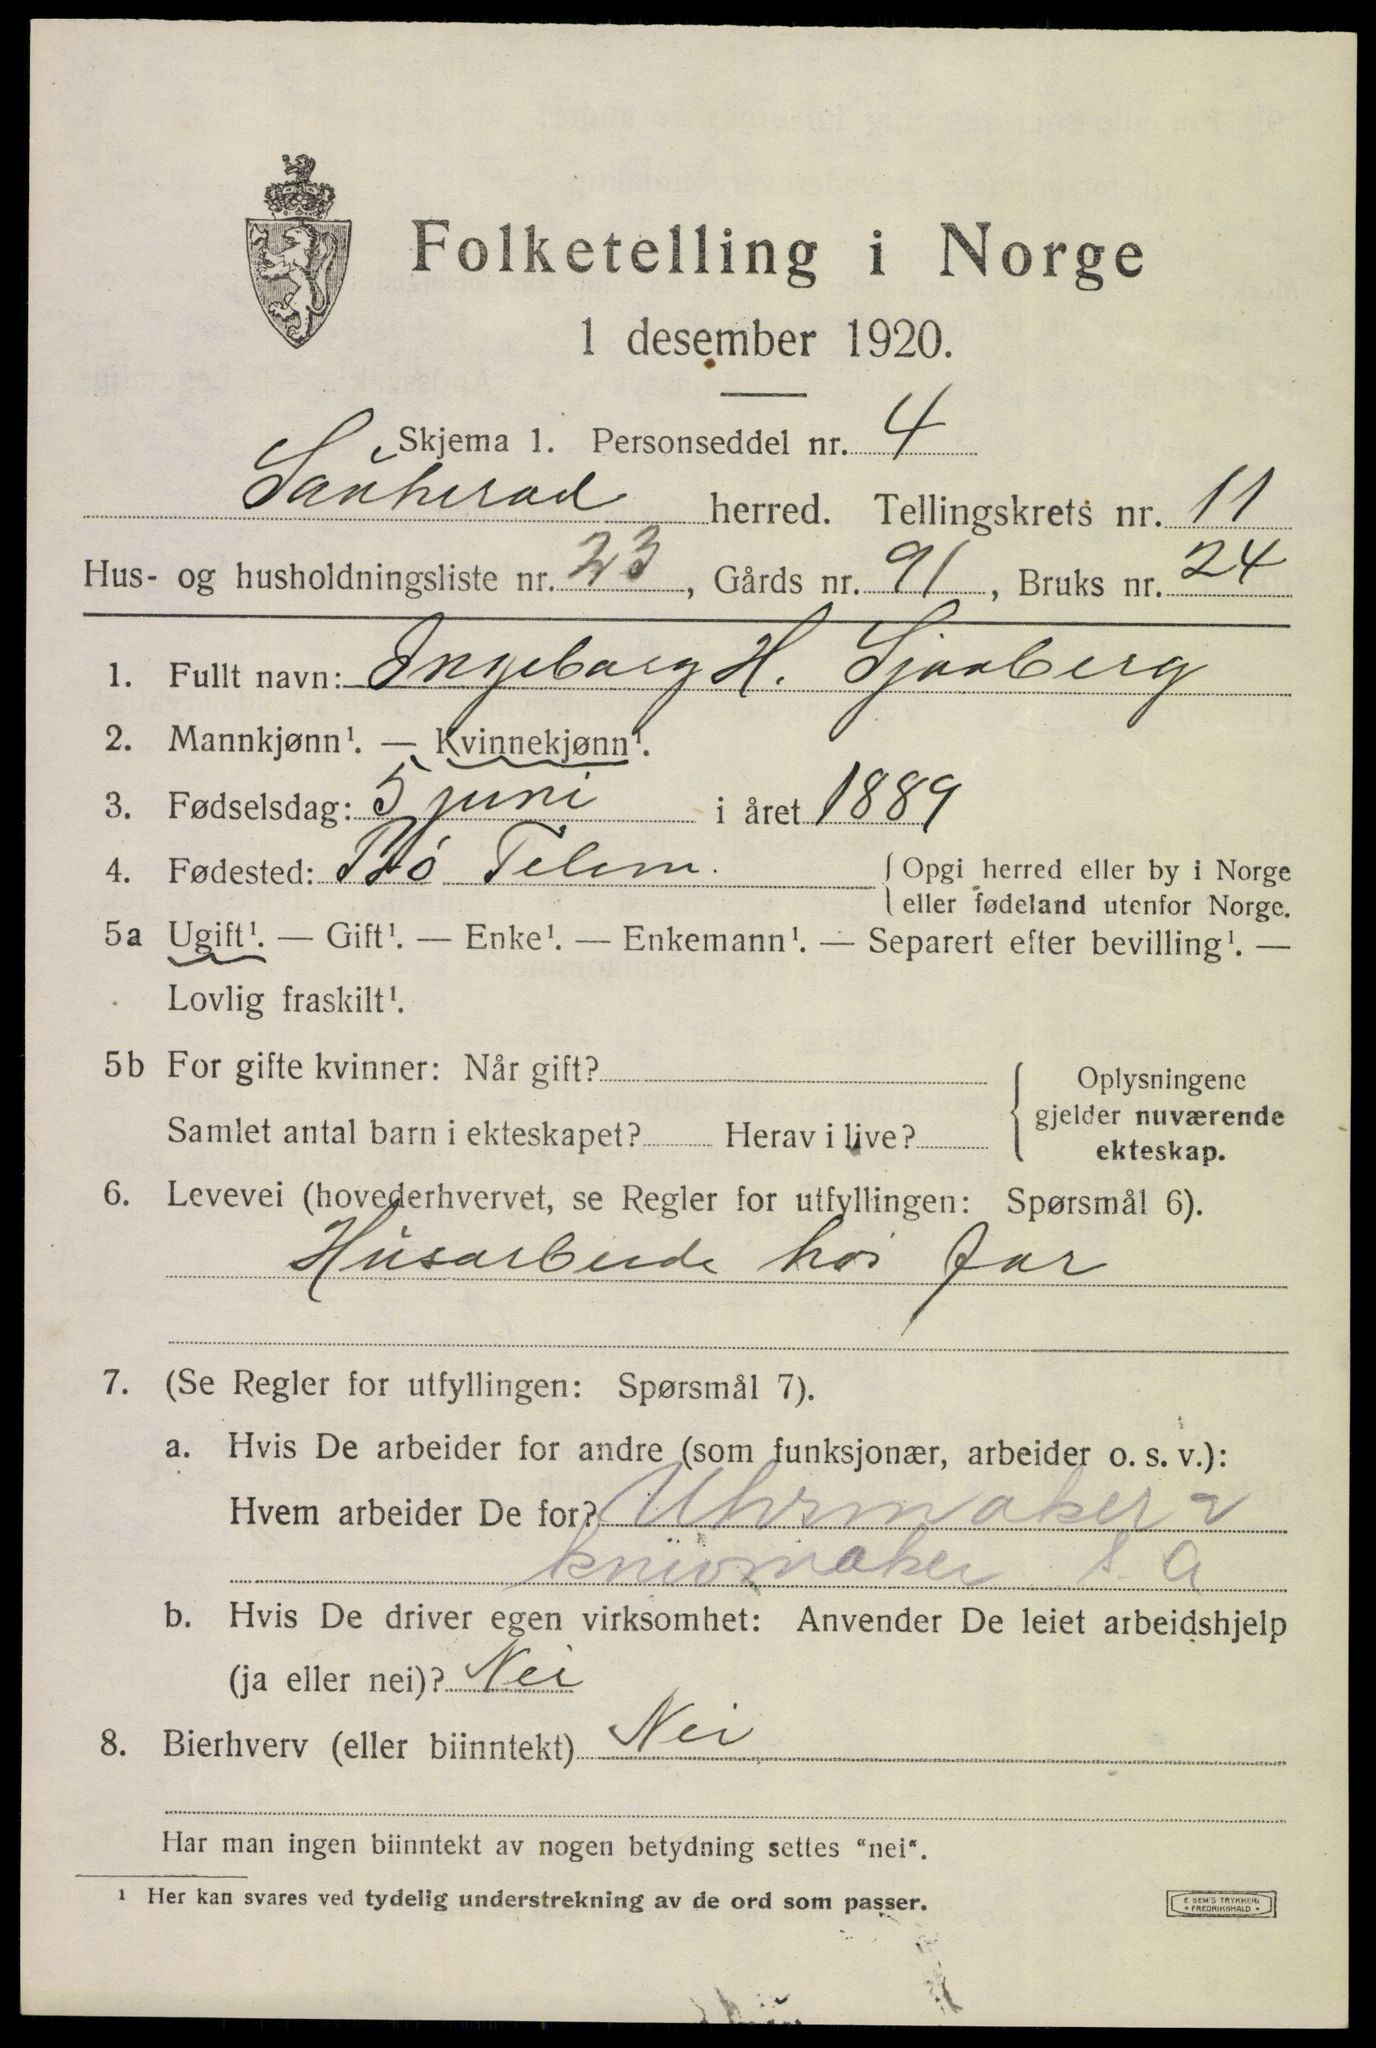 Folketelling i Norge
1 desember 1920.
Skjema 1. Personseddel nr. 4
Sauherad herred. Tellingskrets nr. 11
Hus- og husholdningsliste nr. 23, Gårds nr. 91, Bruks nr. 24
1. Fullt navn: Ingeborg H. Sjaaberg
2. Mannkjønn¹. — Kvinnekjønn¹.
3. Fødselsdag: 5 juni i året 1889
4. Fødested: Bø Telem. { Opgi herred eller by i Norge
eller fødeland utenfor Norge.
5a Ugift¹. — Gift¹. — Enke¹. — Enkemann¹. — Separert efter bevilling¹. —
Lovlig fraskilt¹.
5b For gifte kvinner: Når gift?
Samlet antal barn i ekteskapet? Herav i live?
{ Oplysningene
gjelder nuværende
ekteskap.
6. Levevei (hovederhvervet, se Regler for utfyllingen: Spørsmål 6).
Husarbeide hos far
7. (Se Regler for utfyllingen: Spørsmål 7).
a. Hvis De arbeider for andre (som funksjonær, arbeider o. s. v.):
Hvem arbeider De for? Uhrmaker
knivmaker s. A
b. Hvis De driver egen virksomhet: Anvender De leiet arbeidshjelp
(ja eller nei)? Nei
8. Bierhverv (eller biinntekt) Nei
Har man ingen biinntekt av nogen betydning settes "nei".
¹ Her kan svares ved tydelig understrekning av de ord som passer.
E. SEM'S TRYKKERI
FREDRIKSHALD